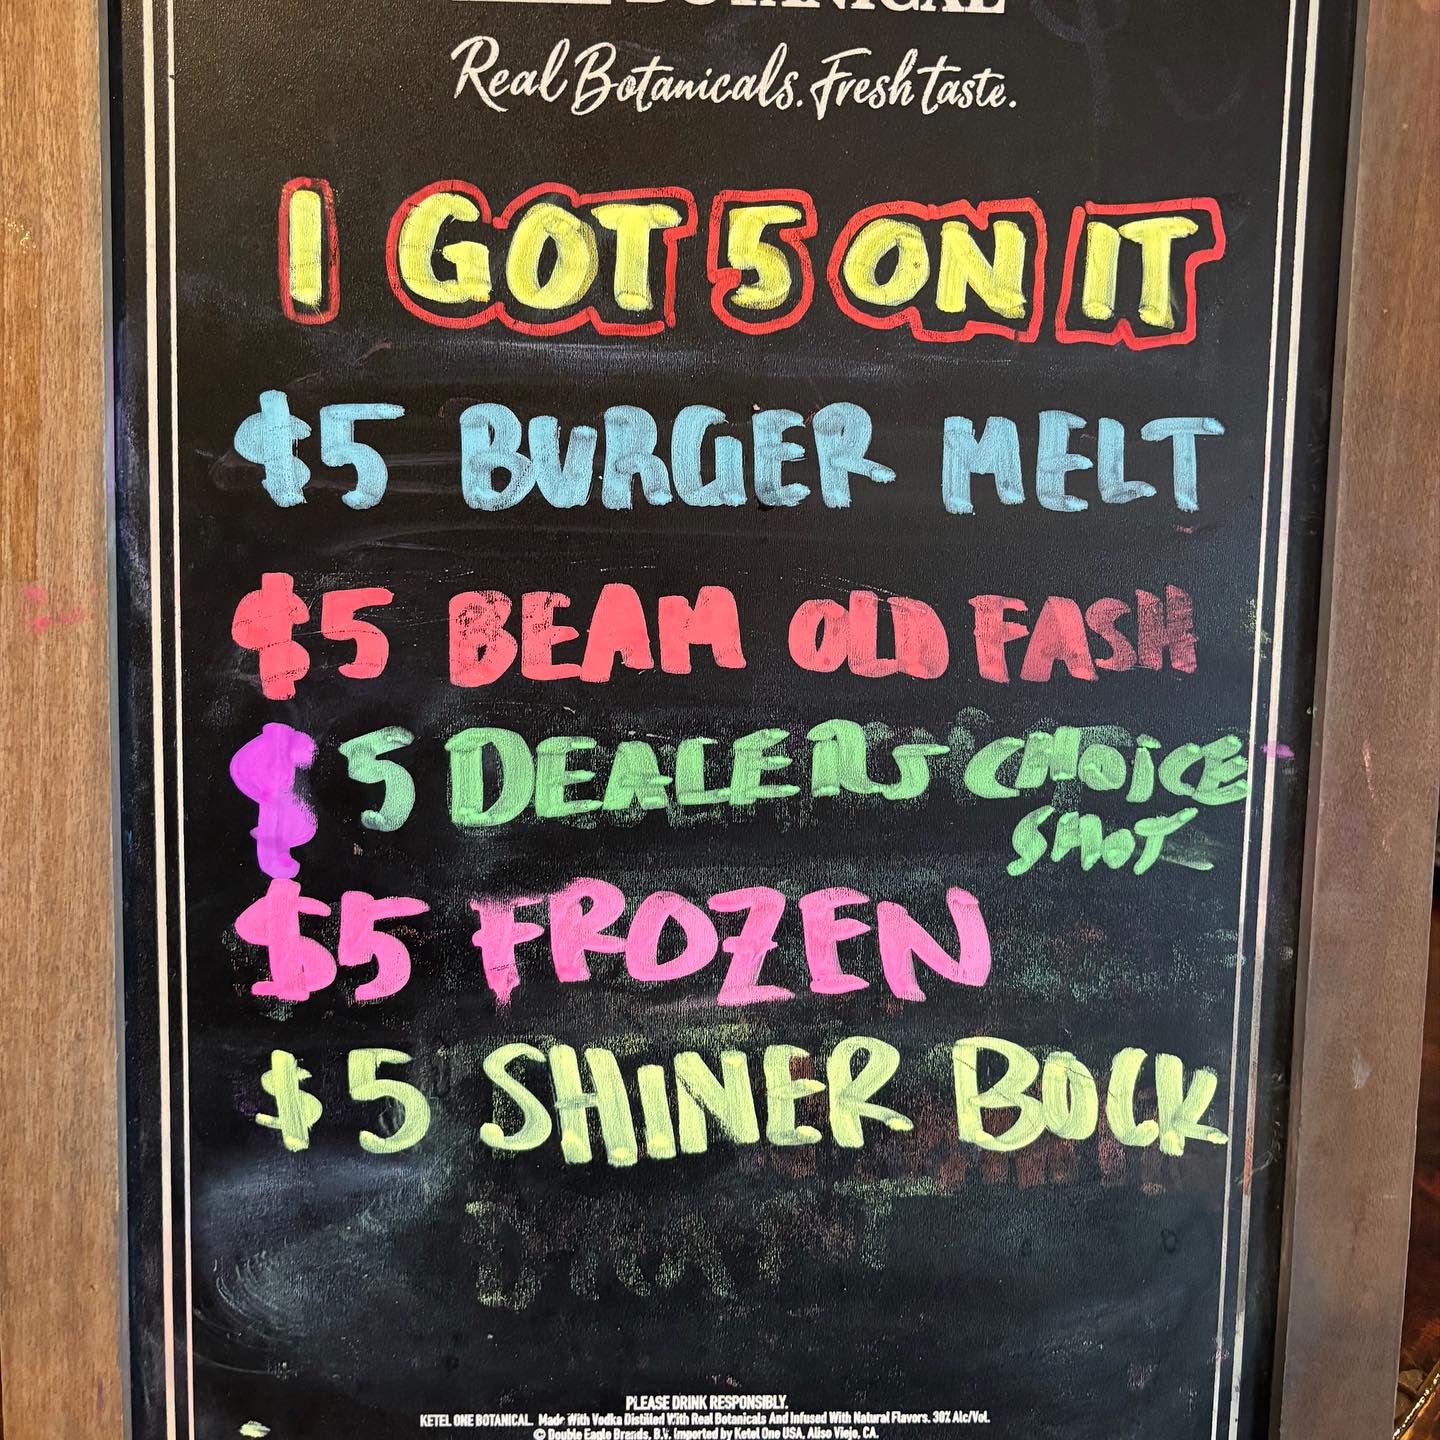 BOTANICAL
Real Botanicals. Fresh taste.
I GOT 5 ON IT
$5 BURGER MELT
$5 BEAM OLD FASH
$5 DEALERS CHOICE
SHOT
$5 FROZEN
$5 SHINER BOCK
DRAFT
PLEASE DRINK RESPONSIBLY.
KETEL ONE BOTANICAL. Made With Vodka Distilled With Real Botanicals And Infused With Natural Flavors. 30% Alc/Vol.
© Double Eagle Brands, B.V. Imported by Ketel One USA, Aliso Viejo, CA.